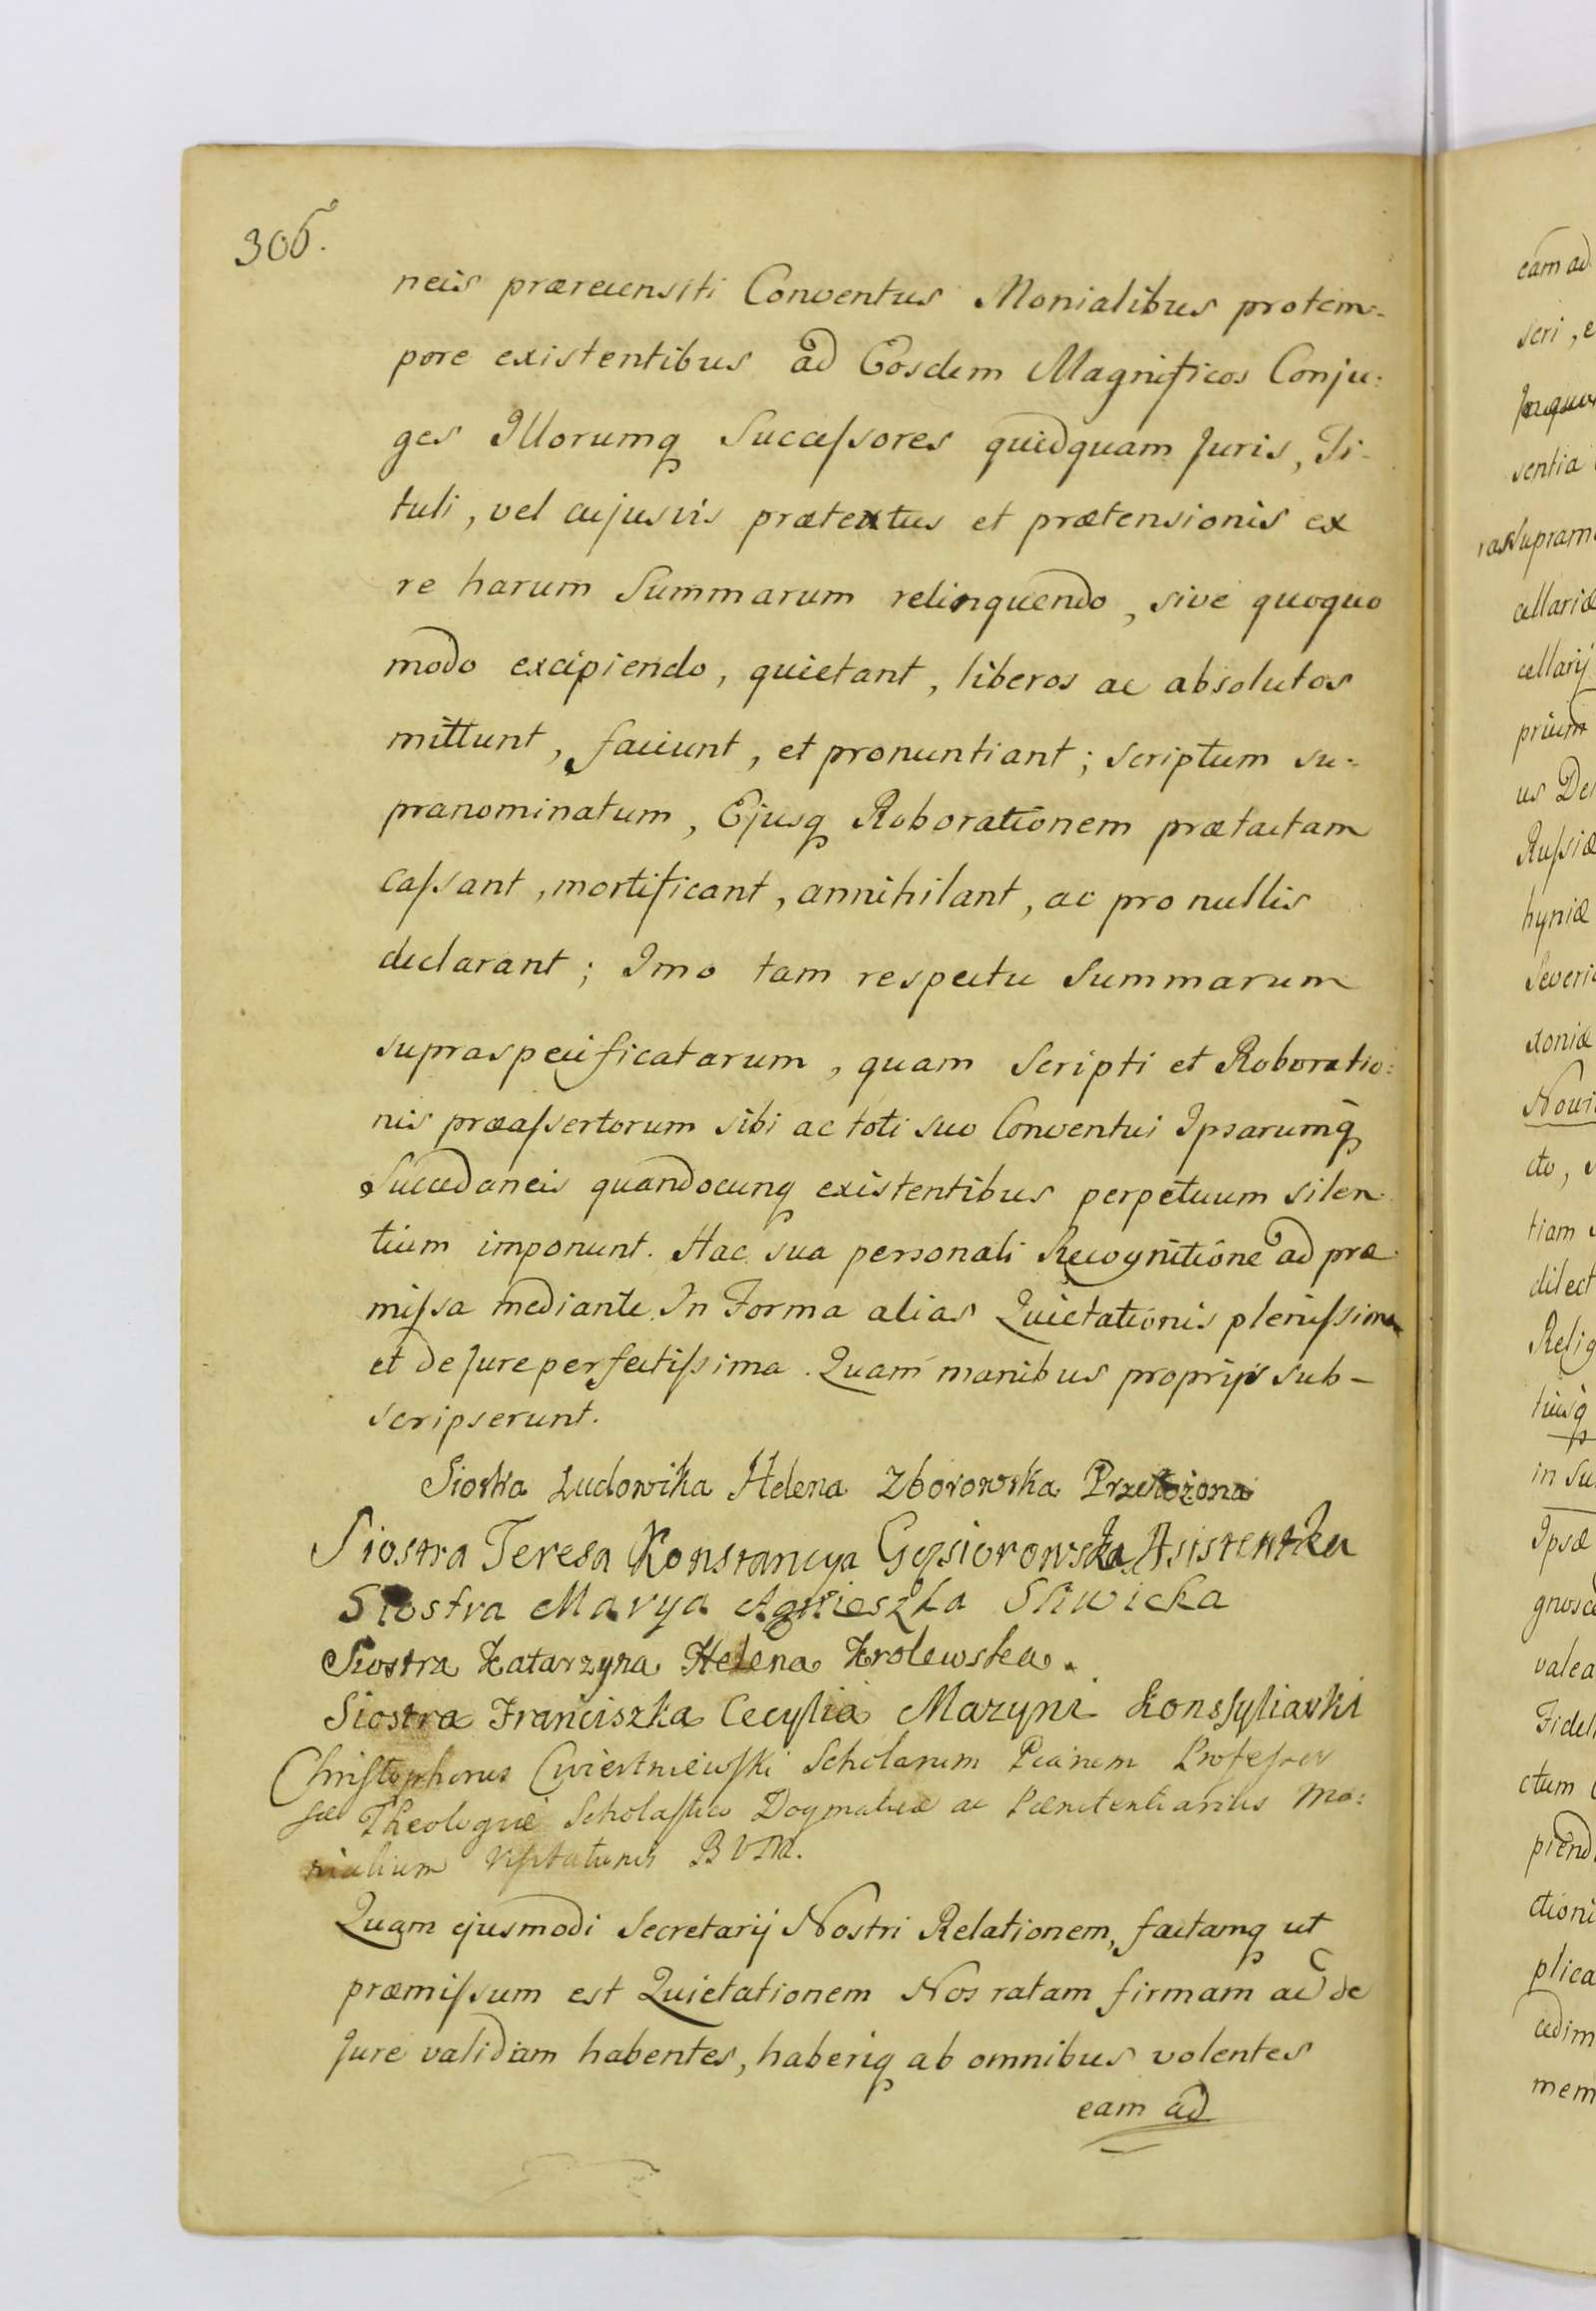 306.
neis prærecensiti Conventus Monialibus protem:
pore existentibus ad Eosdem Magnificos Conju:
ges Illorumq Succeſsores quidquam Juris, Ti-
tuli, vel cujusvis prætextus et prætensionis ex
re harum Summarum relinquendo, sive quoquo
modo excipiendo, quietant, liberos ac absolutos
mittunt, faciunt, et pronuntiant; Scriptum su:
pranominatum, Ejusq Roborationem prætactam
caſsant, mortificant, annihilant, ac pro nullis
declarant; Imo tam respectu Summarum
supraspecificatarum, quam Scripti et Roboratio:
nis præaſsertorum sibi ac toti suo Conventui Ipsarumq
Succedaneis quandocunq existentibus perpetuum silen-
tium imponunt. Hac sua personali Recognitione ad præ-
miſsa mediante. In Forma alias Quietationis pleniſsima
et de Jure perfectiſsima. Quam manibus proprijs sub-
scripserunt.
Siostra Ludowika Helena Zborowska Przełożona
Siostra Teresa Konstancya Gąsiorowska Asistentka
Siostra Marya Agnieszka Sliwicka
Siostra Katarzyna Helena Krolewska.
Siostra Franciszka Cecylia Mazyni Konssyliarki
Chriſtophorus Cwiertniewſki Scholarum Piarum Profeſsor
Sæ Theologiæ Scholaſticæ Dogmaticæ ac Pænitentiarius Mo:
nialium Viſitationis B V M.
Quam ejusmodi Secretarij Nostri Relationem, factamq ut
præmiſsum est Quietationem Nos ratam firmam ac de
Jure validam habentes, haberiq ab omnibus volentes
eam ad
eam ad
seri, e
sentia
supram
cellariæ
cellarij
prium
us De
Ruſsiæ
hyniæ
Severi
xoniæ
Nowi
cto,
tiam
dilect
Relig
tiusq
in Su
Ipsæ
gnosce
valea
Fidel
ctum
piend
ctioni
plica
cedim
mem